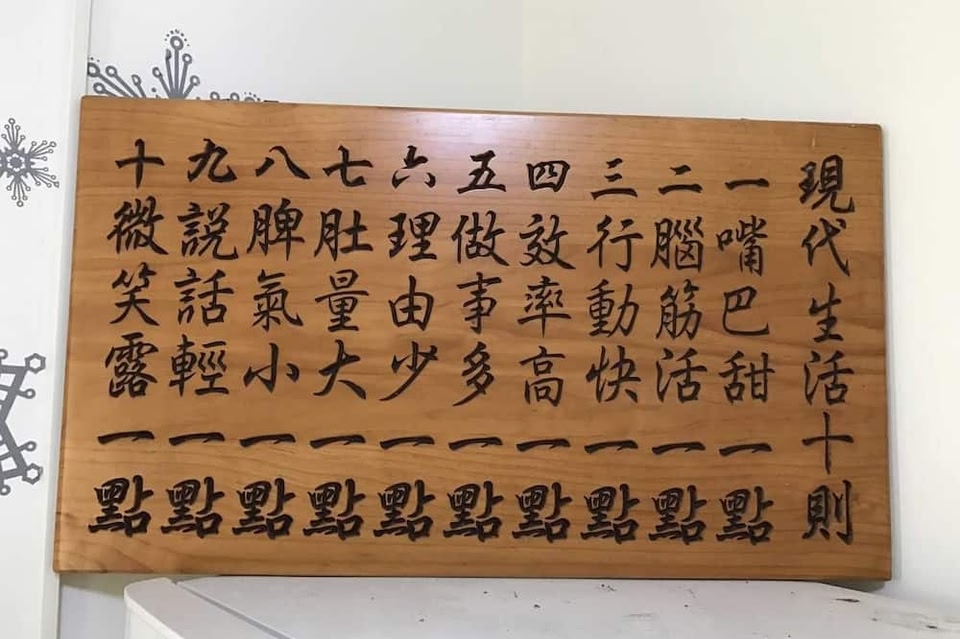 現代生活十則
一嘴巴甜一點
二腦筋活一點
三行動快一點
四效率高一點
五做事多一點
六理由少一點
七肚量大一點
八脾氣小一點
九說話輕一點
十微笑露一點